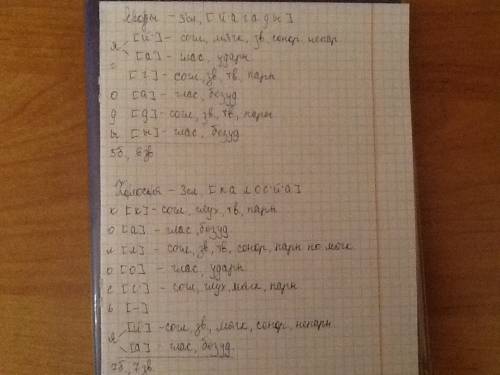 Ягоды – 3сл, [й'а г а д ы]
я [й'] – согл, мягк, зв, сонор, непар.
[а] – глас, ударн
[г] – согл, зв, тв, парн
о [а] – глас, безуд
д [д] – согл, зв, тв, парн
ы [ы] – глас, безуд
5б, 6зв

Колосья – 3сл, [к а л о с' й' а]
к [к] – согл, глух, тв, парн
о [а] – глас, безуд
л [л] – согл, зв, тв, сонор, парн по мягк
о [о] – глас, ударн
с [с'] – согл, глух, мягк, парн
ь [–]
я [й'] – согл, зв, мягк, сонор, непарн.
[а] – глас, безуд.
7б, 7зв